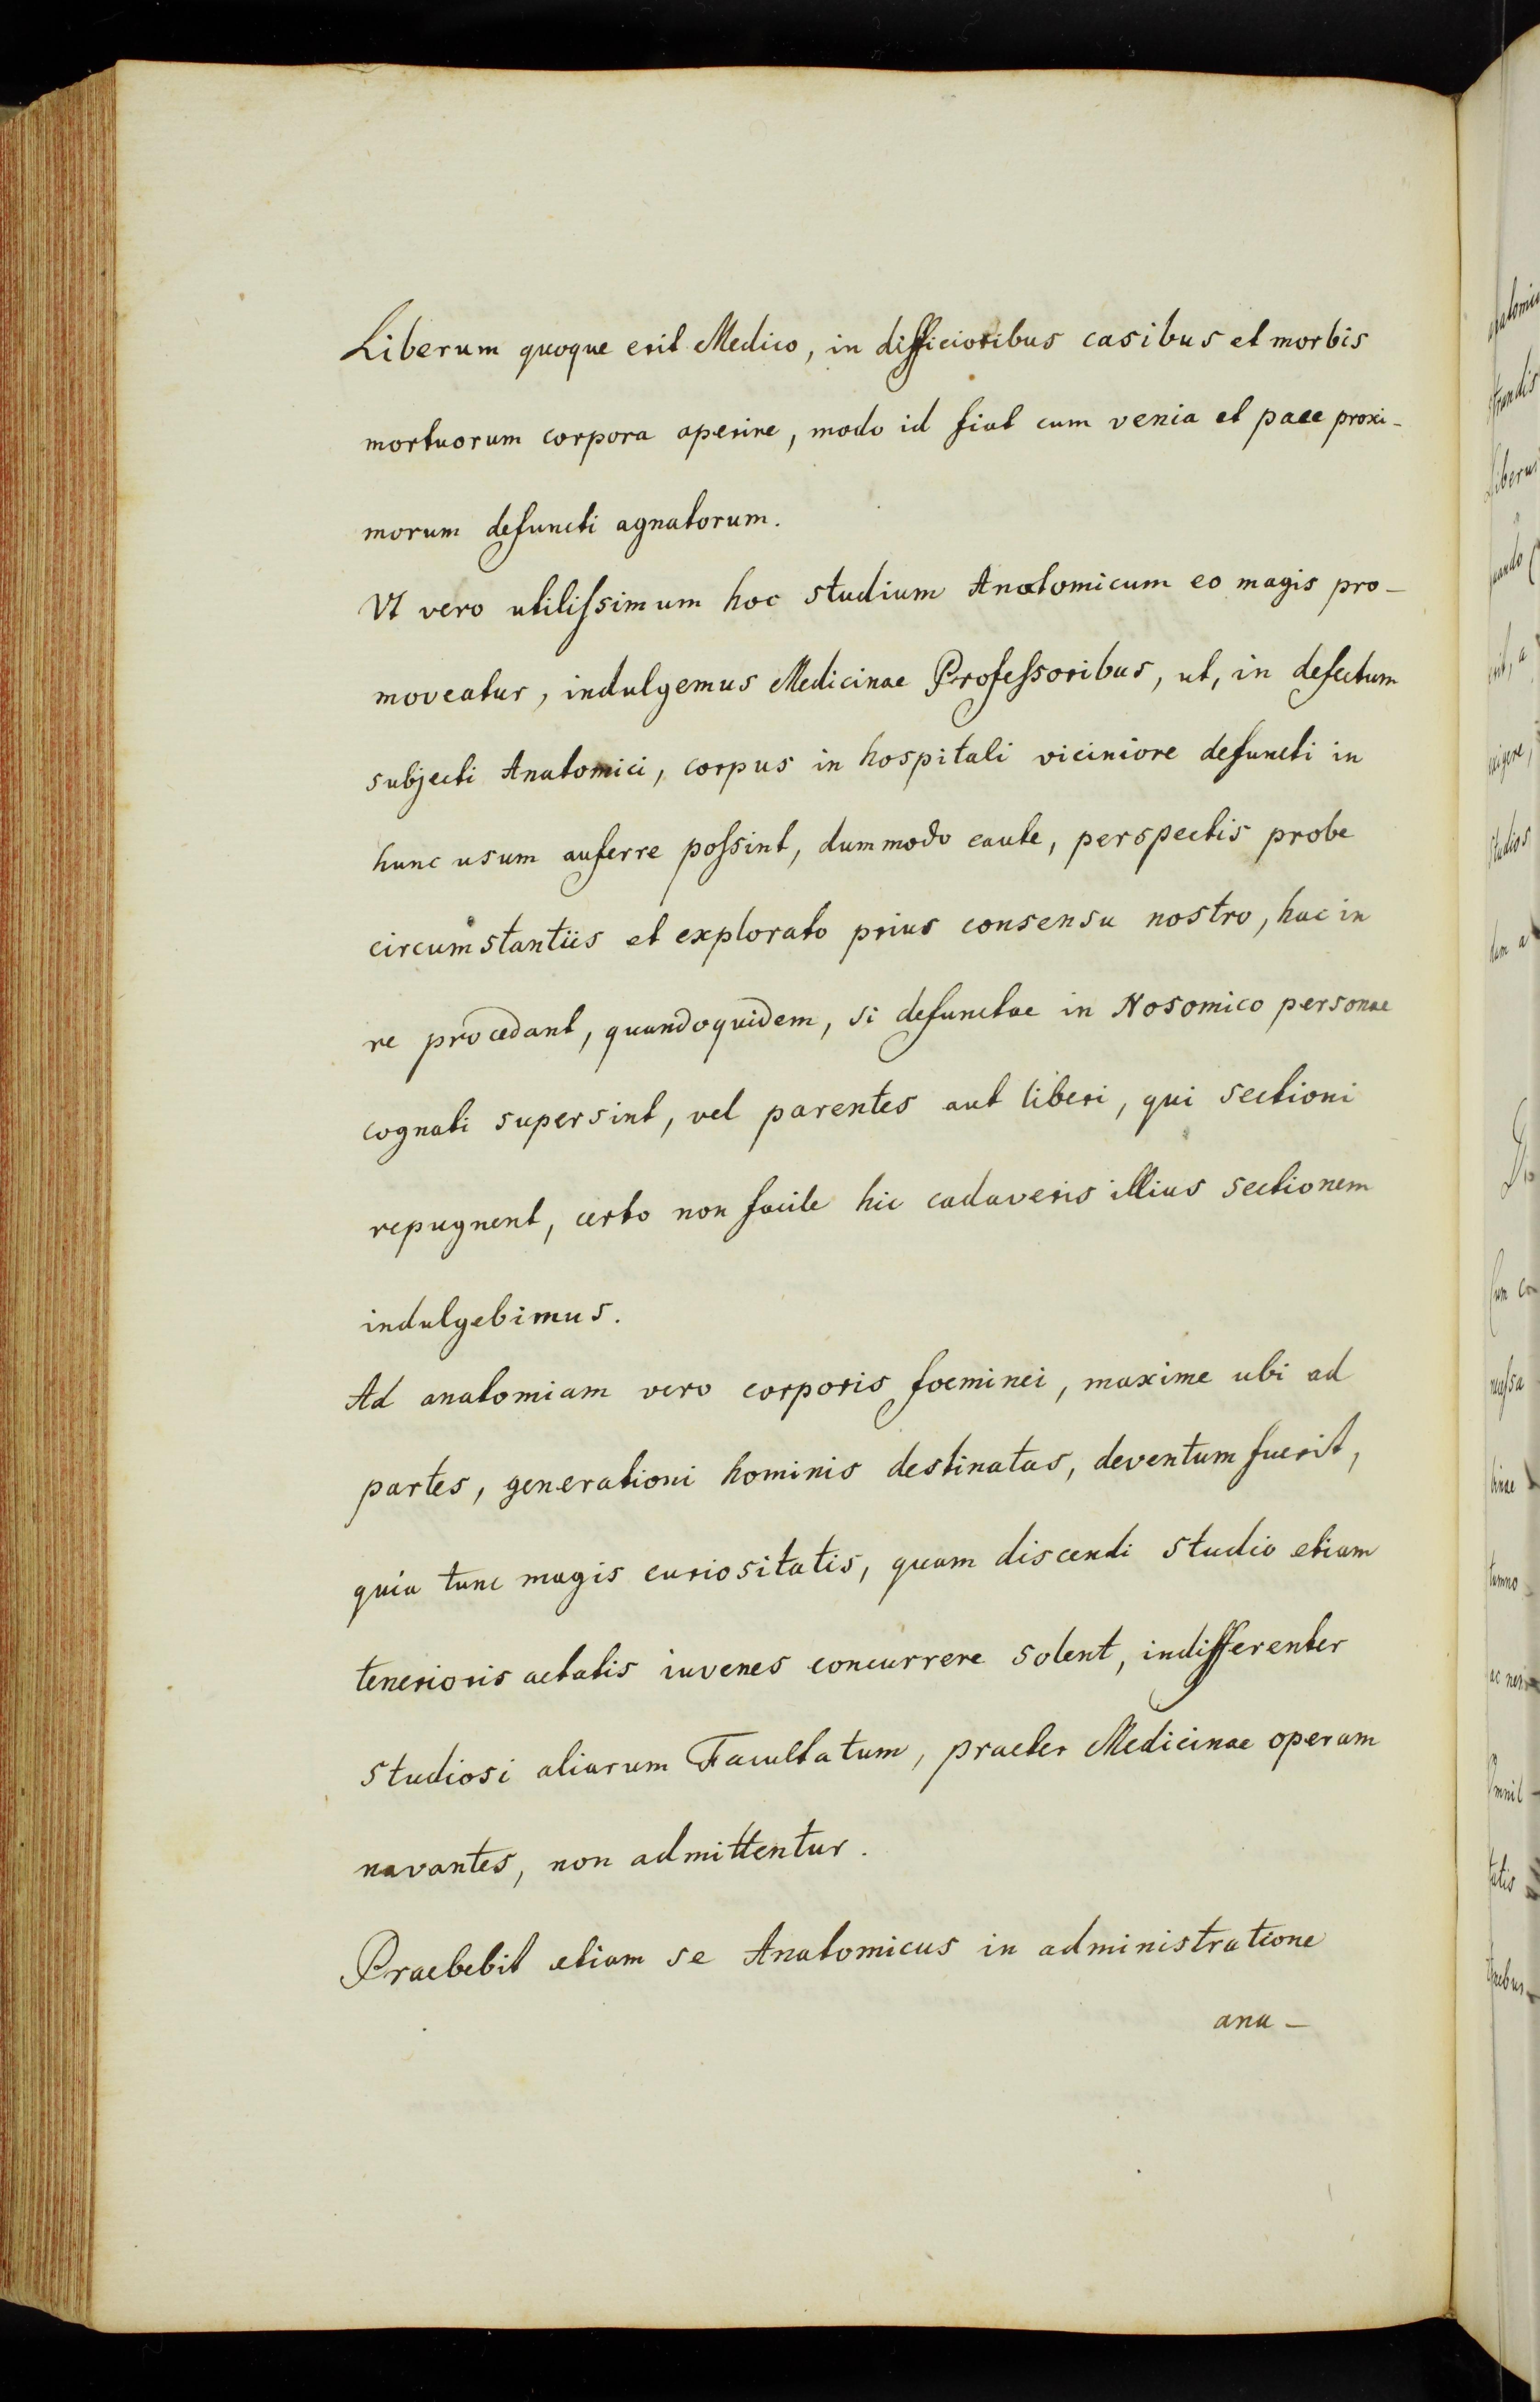 Liberum quoque erit Medico, in difficioribus casibus et morbis
mortuorum corpora aperire, modo id fiat cum venia et pace proxi-
morum defuncti agnatorum.
Vt vero utilissimum hoc studium Anatomicum eo magis pro-
moveatur, indulgemus Medicinae Professoribus, ut, in defectum
subjecti Anatomici, corpus in hospitali viciniore defuncti in
hunc usum auferre possint, dummodo caute, perspectis probe
circumstantiis et explorato prius consensu nostro, hac in
re procedant, quandoquidem, si defunctae in Nosomico personae
cognati supersint, vel parentes aut liberi, qui sectioni
repugnent, certo non facile hic cadaveris illius sectionem
indulgebimus.
Ad anatomiam vero corporis foeminei, maxime ubi ad
partes, generationi hominis destinatas, deventum fuerit,
quia tunc magis curiositatis, quam discendi studio etiam
tenerioris aetatis iuvenes concurrere solent, indifferenter
studiosi aliarum Facultatum, praeter Medicinae operam
navantes, non admittentur.
Praebebit etiam se Anatomicus in administratione
ana-